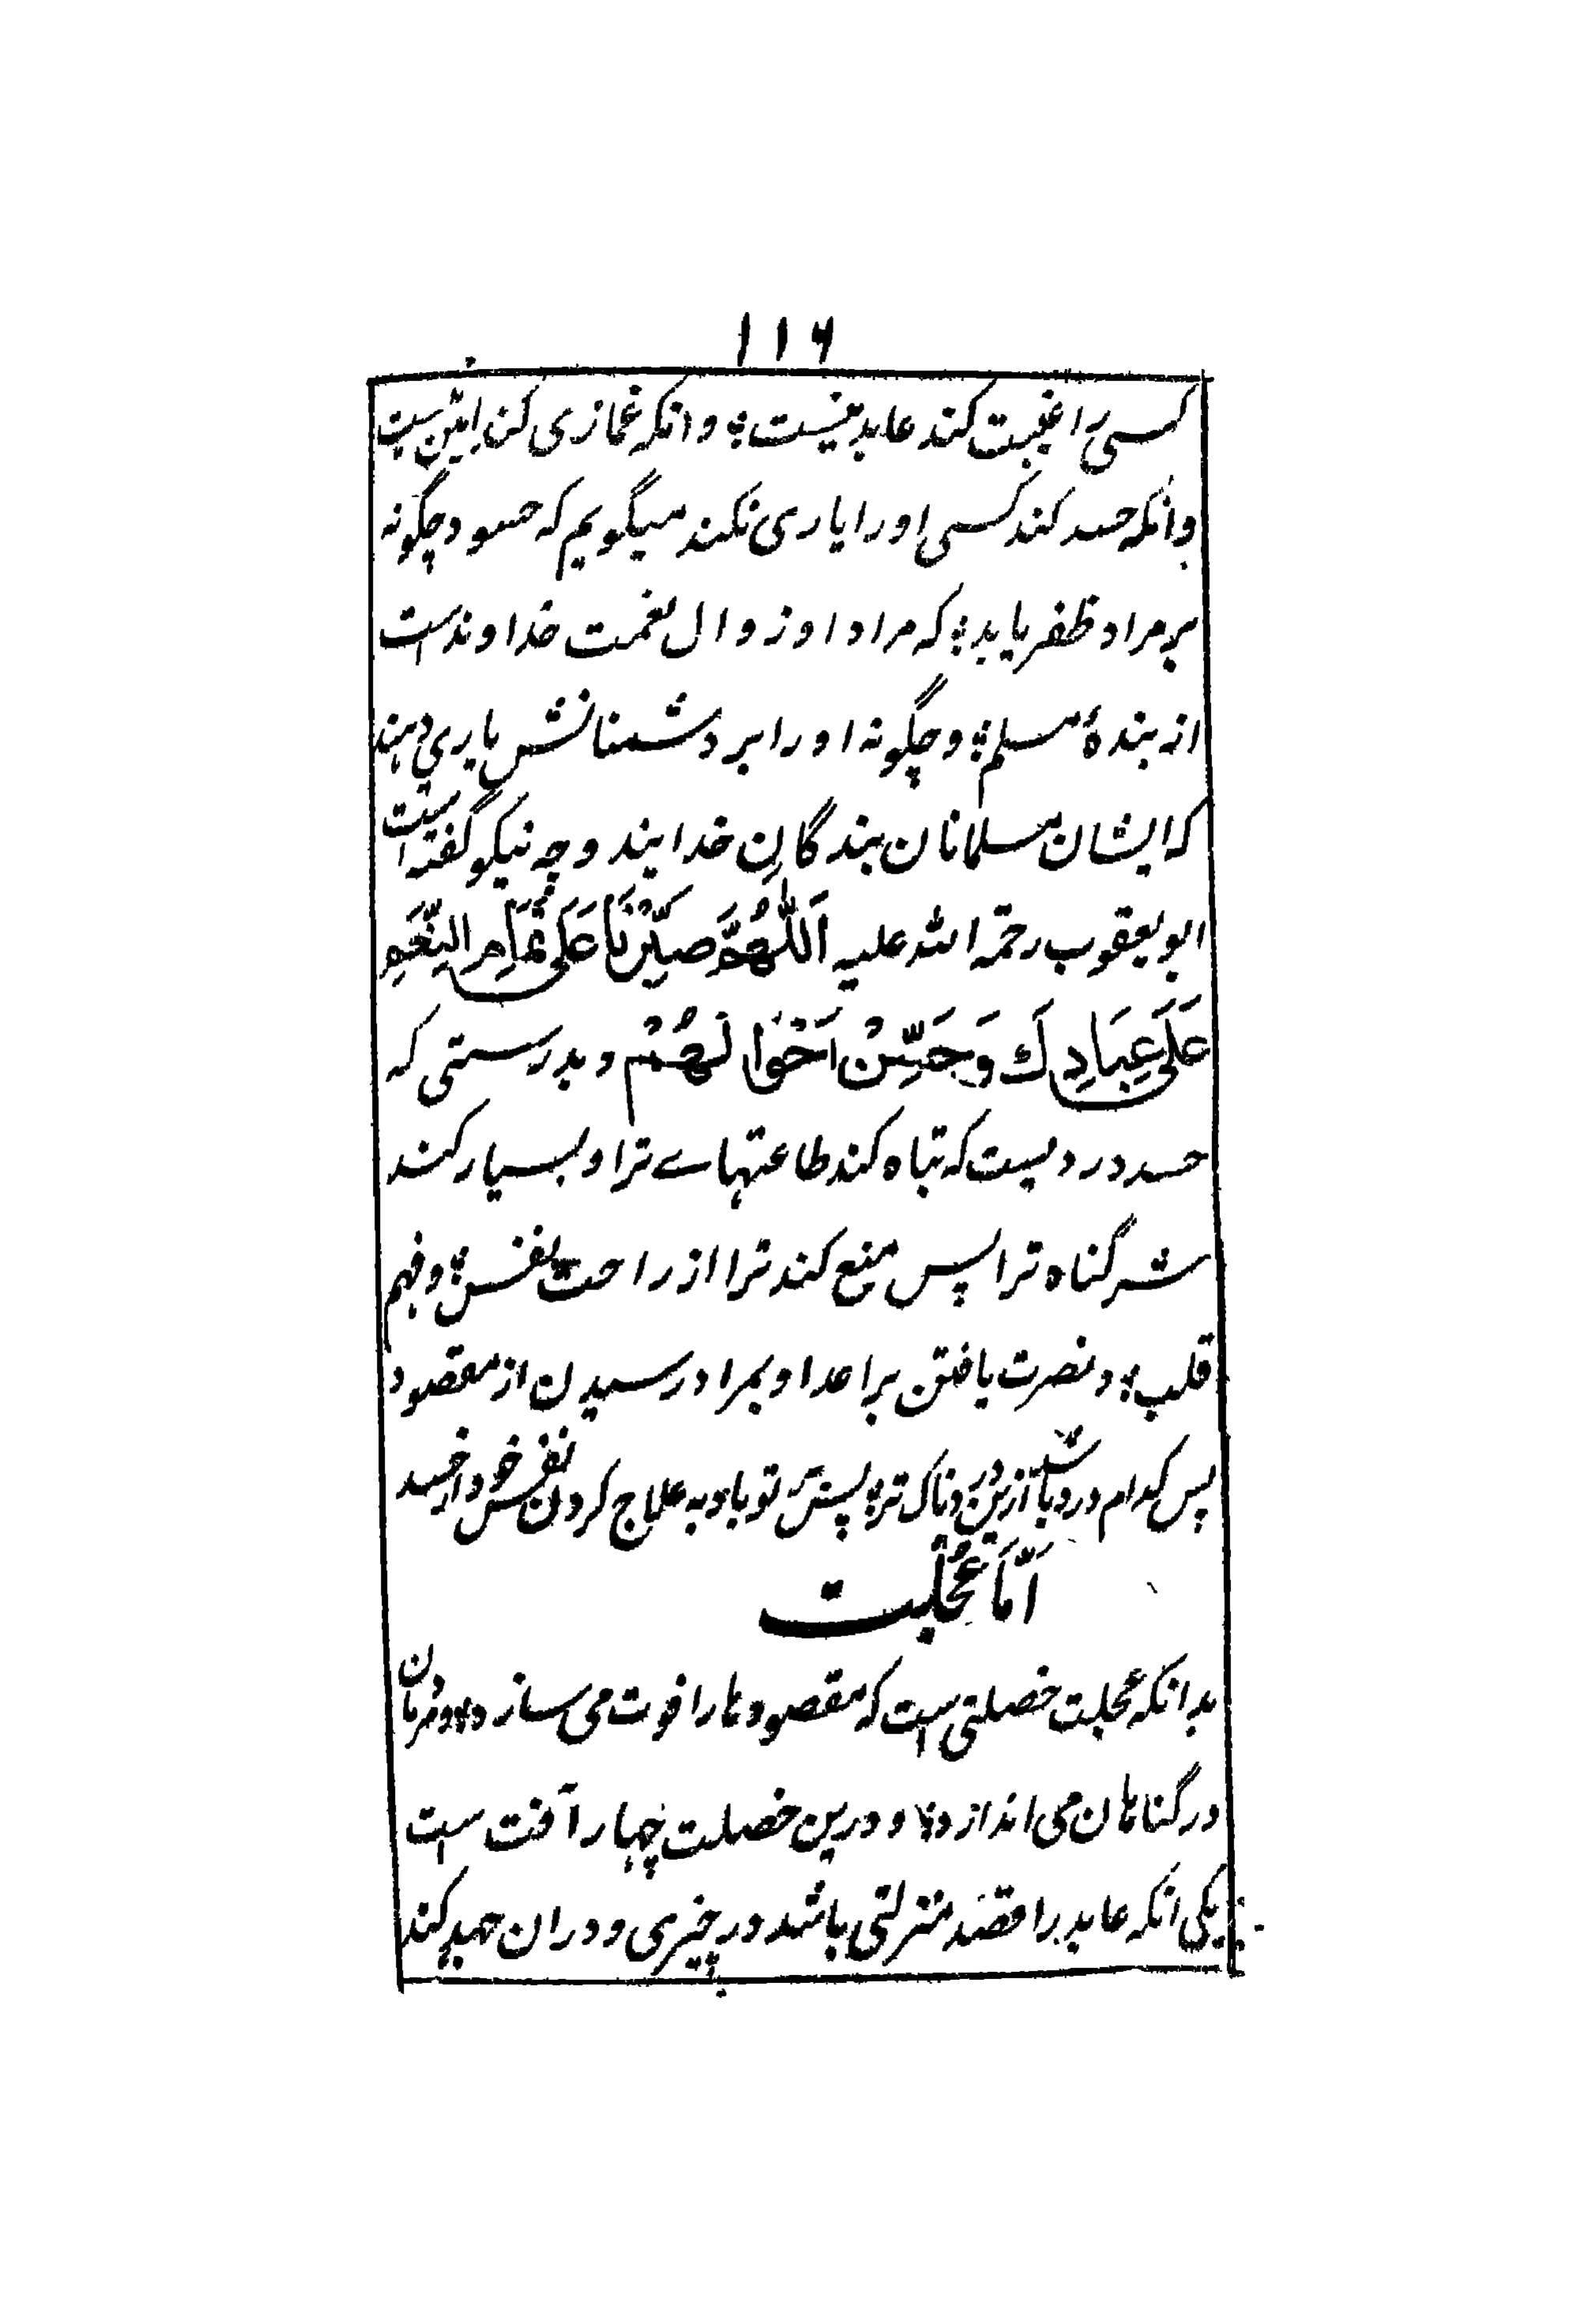 ۱۱۶
کسی را غیبت کند عابد نیست؛ و انکه غمازی کند امین نیست
و انکه حسد کند کسی اورا یاری نکند میگویم که حسود چگونه
بر مراد ظفر یابد؛ که مراد او زوال نعمت خداوند است
از بندهٔ مسلم؛ و چگونه اورا بر دشمنانش یاری دهند
که ایشان مسلمانان بندگانِ خدایند و چه نیکو گفته است
ابو یعقوب رحمة الله علیه اَللّٰهُمَّ صَبِّرْنَا عَلَی تَمَامِ النِّعَمِ
عَلَی عِبَادِكَ وَحَسِّنْ اَحْوَالَهُمْ و بدرستی که
حسد دردیست که تباه کند طاعتهاے ترا و بسیار کند
شر گناه ترا پس منع کند ترا از راحت نفس؛ و فهم
قلب؛ و نصرت یافتن بر اعدا و بمراد رسیدن از مقصود
پس کدام درد باشد ازین دردناک تر؛ پس بر تو باد به علاج کردن نفس خود از حسد
اَمَّا عُجُلَت
بدانکه عجلت خصلتی است که مقصودها را فوت می سازد؛ و مردمان
در گناهان می اندازد؛ و درین خصلت چهار آفت است
یکی انکه عابد را قصد منزلتی باشد در چیزی و دران جهد کند